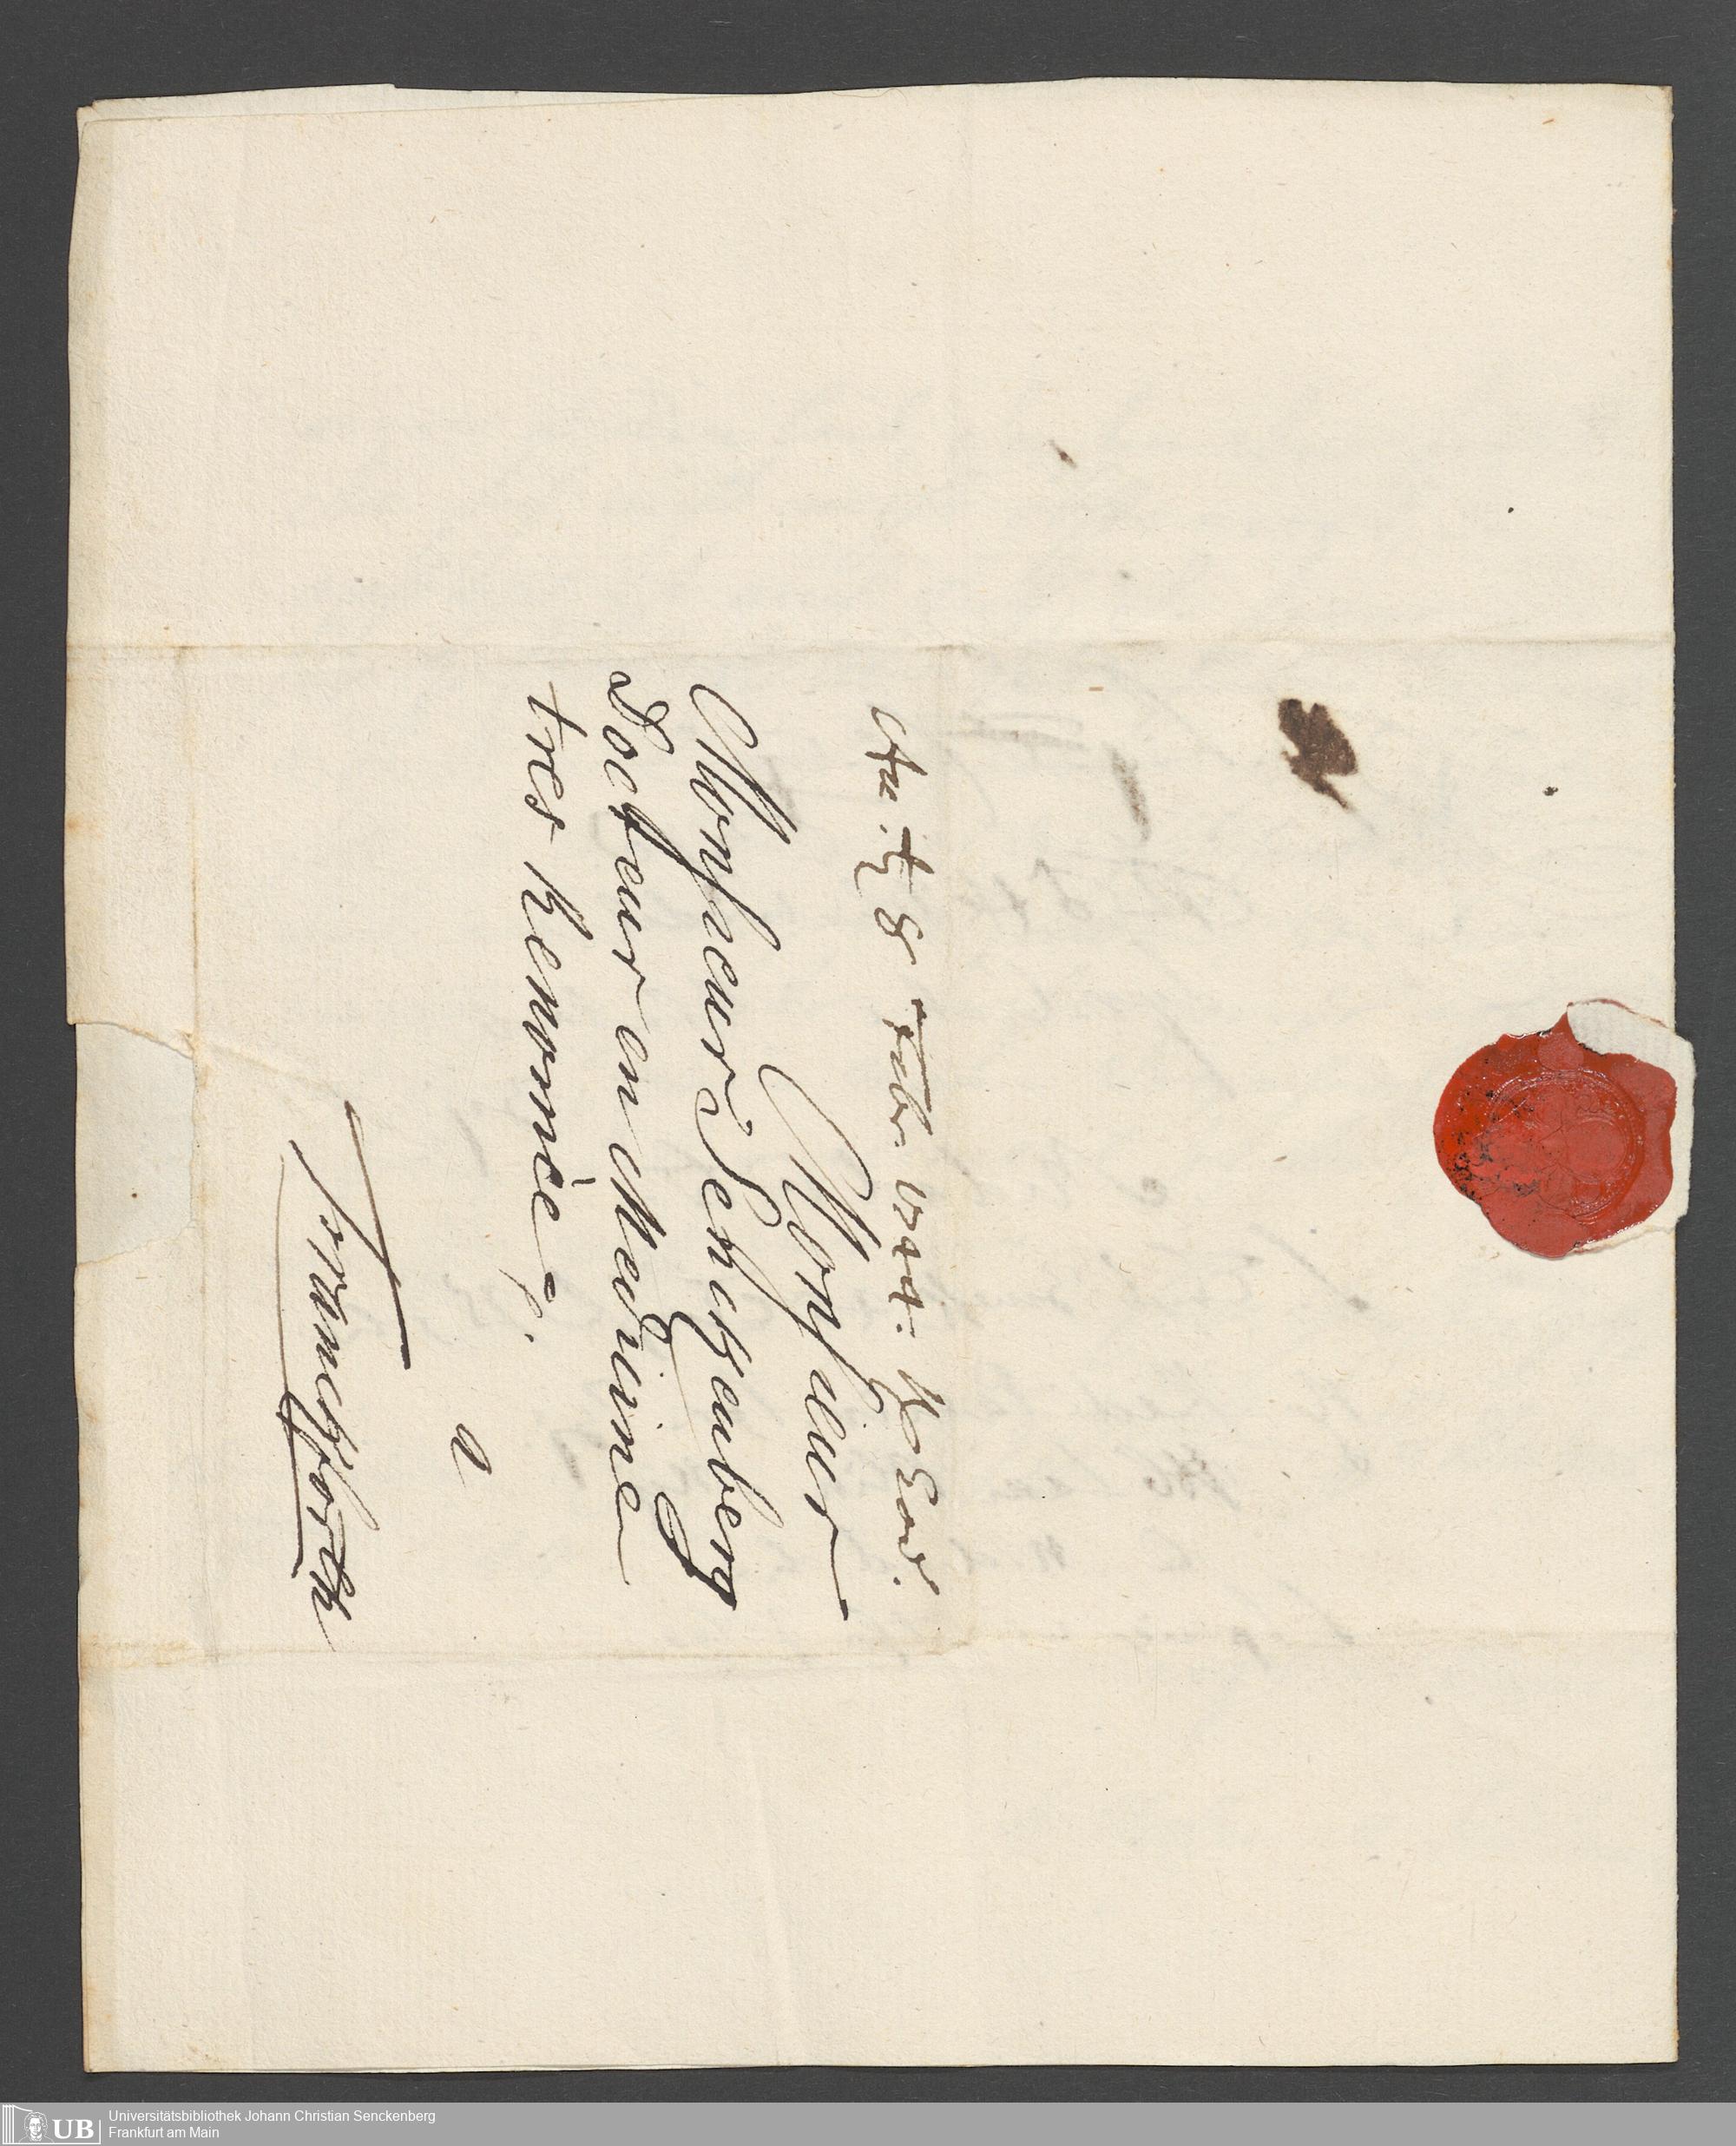 8 Febr. 1744.
Monsieur
Monsieur Senckenberg
Docteur en Medicine
tres Renomèe p.
a
Franckforth
UB Universitätsbibliothek Johann Christian Senckenberg
Frankfurt am Main